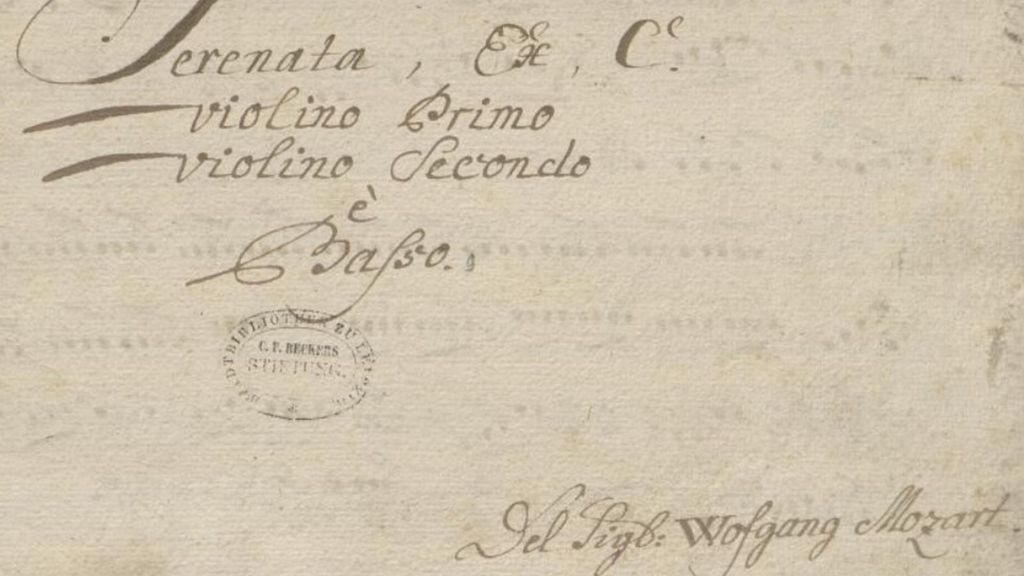 Serenata, Ex, C.
violino Primo
violino Secondo
è
Basso.
STADTBIBLIOTHEK ZU LEIPZIG
C. F. BECKERS
STIFTUNG.
Del Sigl: Wofgang Mozart.